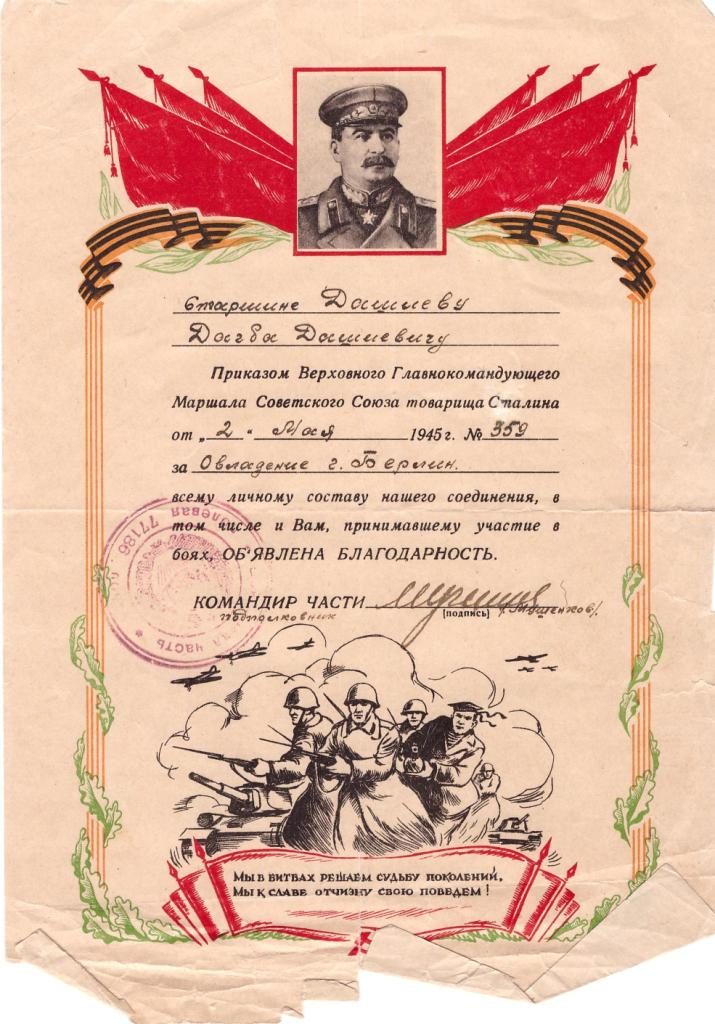 Старшине Дашиеву
Дагба Дашиевичу
Приказом Верховного Главнокомандующего
Маршала Советского Союза товарища Сталина
от „2“ Мая 1945 г. № 359
за Овладение г. Берлин.
всему личному составу нашего соединения, в
том числе и Вам, принимавшему участие в
боях, ОБ'ЯВЛЕНА БЛАГОДАРНОСТЬ.
КОМАНДИР ЧАСТИ
подполковник
[подпись]
полевая
77186
часть
МЫ В БИТВАХ РЕШАЕМ СУДЬБУ ПОКОЛЕНИЙ,
МЫ К СЛАВЕ ОТЧИЗНУ СВОЮ ПОВЕДЕМ!